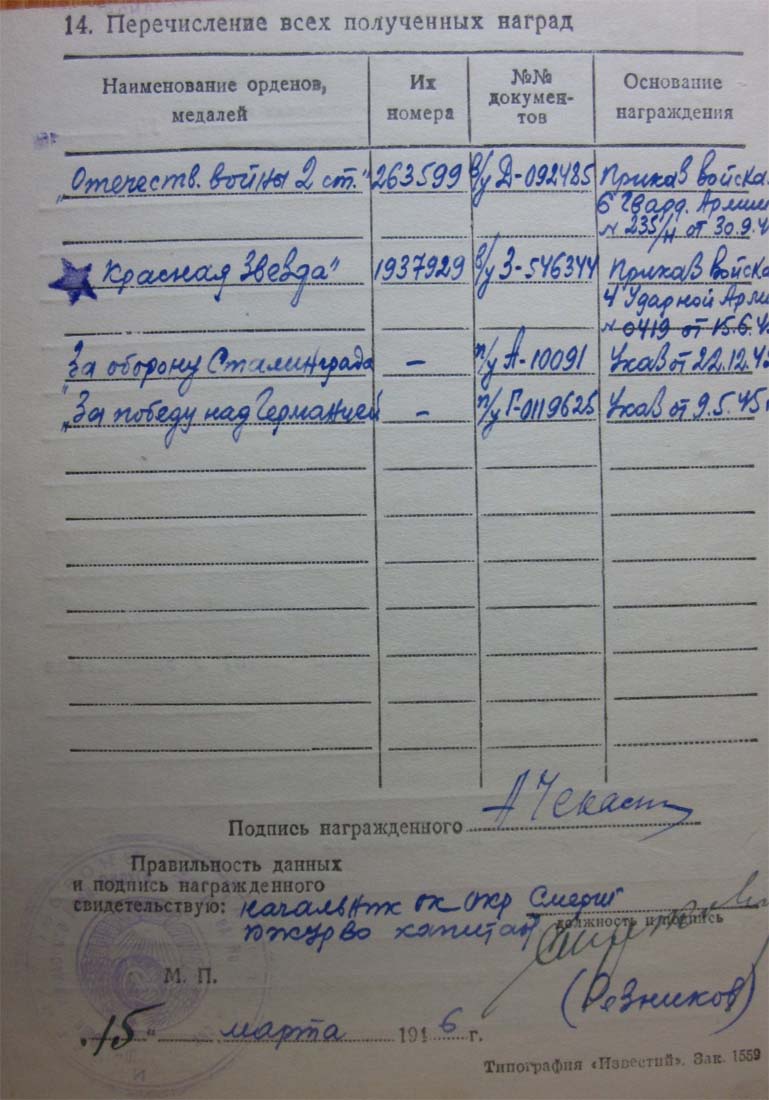 14. Перечисление всех полученных наград
Наименование орденов,
медалей
Их
номера
№№
докумен-
тов
Основание
награждения
„Отечеств. войны 2 ст." 263599 в/у Д-092485 Приказ войска
6 Гвард. Армии
№ 235/н от 30.9.4
„Красная Звезда" 1937929 в/у З-546344 Приказ войска
4 Ударной Арми
№ 0419 от 15.6.4
„За оборону Сталинграда – п/у А-10091 Указ от 22.12.42
„За победу над Германией – п/у Г-0119625 Указ от 9.5.45
Подпись награжденного
Правильность данных
и подпись награжденного
свидетельствую: начальник ОК ОКР Смерш
ЮжУрВО капитан
должность и подпись
М. П.
(Резников)
„15" марта 1946 г.
Типография «Известий». Зак. 1559